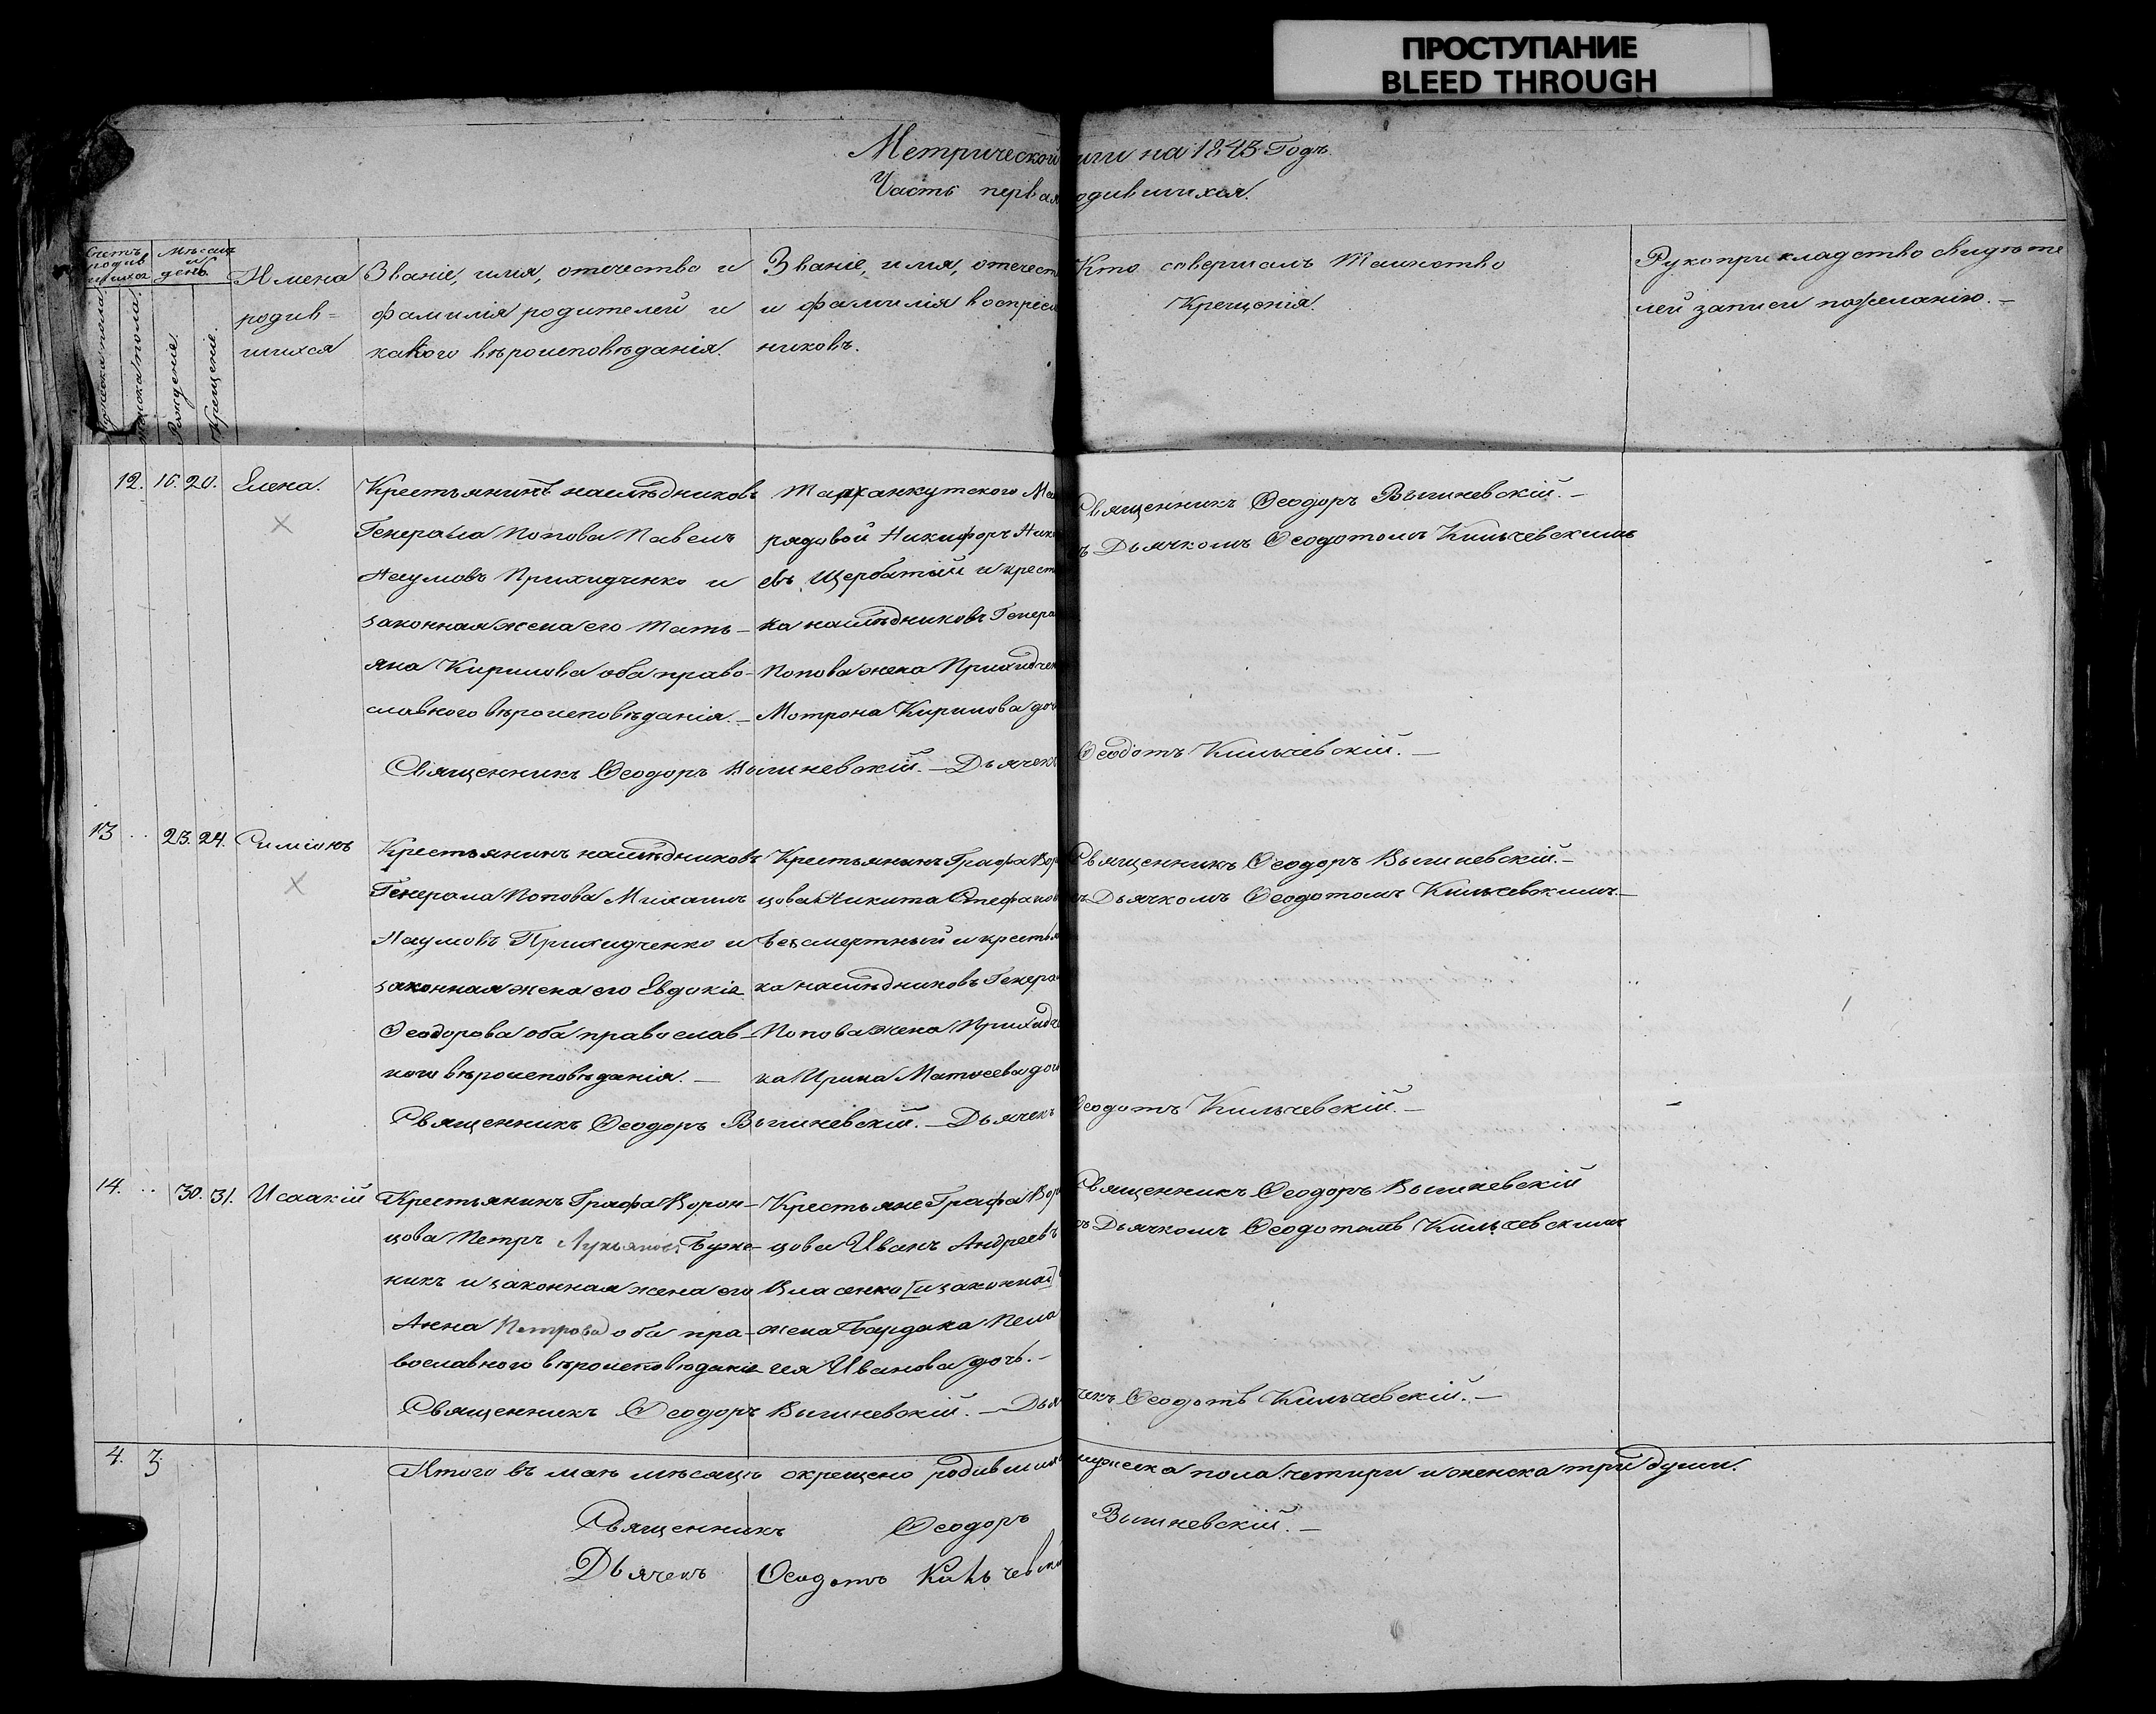 ПРОСТУПАНИЕ
BLEED THROUGH
Метрической ниги на 1843 Годъ.
Часть первая одившихся.
Счетъ родив шихся
Мѣсяцъ и день.
Рожденіе.
Крещеніе.
Имена
родив=
шихся
Званіе, имя, отечество и
фамилія родителей и
какого вѣроисповѣданія.
Званіе, имя, отечест
и фамилія воспріем
никовъ.
Кто совершалъ Таинство
Крещенія.
Рукоприкладство свидѣте
лей записи по желанію. —
12. 16. 20. Елена.
Крестьянинъ наслѣдниковъ
Генерала Попова Павелъ
Наумовъ Приходченко и
законная жена его Тать-
яна Кирилова оба право-
славного вѣроисповѣданія. —
Тарханкутского Ма
рядовой Никифоръ Ник
евъ Щербатый и крест
ка наслѣдниковъ Генера
Попова жена Приходчен
Мотрона Кирилова доч
Священникъ Ѳеодоръ Вышневскій. —
ъ Дьячкомъ Ѳеодотомъ Кильчевскимъ
Священникъ Ѳеодоръ Вышневскій. — Дьячекъ Ѳеодотъ Кильчевскій. —
13 .. 23. 24. Симіонъ
Крестьянинъ наслѣдниковъ
Генерала Попова Михаилъ
Наумовъ Приходченко и
законная жена его Евдокія
Ѳеодорова оба православ-
ного вѣроисповѣданія. —
Крестьянинъ Графа Вор
цова Никита Стефанов
Безсмертный и крестья
ка наслѣдниковъ Генера
Попова жена Приходче
ка Ирина Матвеева доч
Священникъ Ѳеодоръ Вышневскій. —
ъ Дьячкомъ Ѳеодотомъ Кильчевскимъ. —
Священникъ Ѳеодоръ Вышневскій. — Дьячекъ Ѳеодотъ Кильчевскій. —
14. .. 30. 31. Исаакій
Крестьянинъ Графа Ворон-
цова Петръ Лукьяновъ Буже-
никъ и законная жена его
Анна Петрова оба пра-
вославного вѣроисповѣдані
Крестьяне Графа Вор
цова Иванъ Андреевъ
Власенко [и законная]
жена Бардака Пела
гея Иванова дочь. —
Священникъ Ѳеодоръ Вышневскій
ъ Дьячкомъ Ѳеодотомъ Кильчевскимъ
Священникъ Ѳеодоръ Вышневскій. — Дья чекъ Ѳеодотъ Кильчевскій. —
4. 3.
Итого въ маѣ мѣсяцѣ окрещено родивших мужеска пола четыри и женска три души.
Священникъ Ѳеодоръ Вышневскій. —
Дьячекъ Ѳеодотъ Кильчевскі